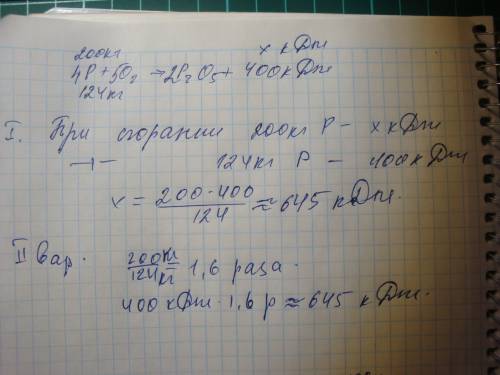 200кг х кДж
4P + 5O₂ → 2P₂O₅ + 400 кДж
124кг
I. При сгорании 200кг P – х кДж
–||– 124кг P – 400 кДж
х = 200·400 / 124 ≈ 645 кДж.
II вар. 200кг / 124кг 1,6 раза.
400 кДж · 1,6 р ≈ 645 кДж.